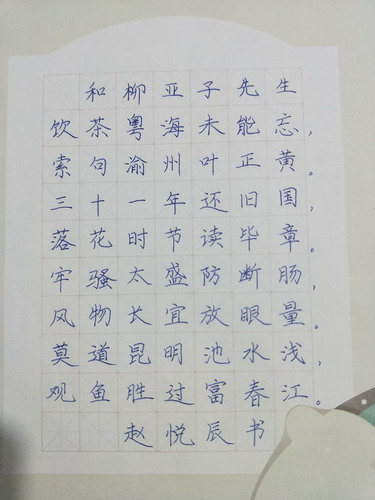 和柳亚子先生
饮茶粤海未能忘，
索句渝州叶正黄。
三十一年还旧国，
落花时节读毕章。
牢骚太盛防断肠，
风物长宜放眼量。
莫道昆明池水浅，
观鱼胜过富春江。
赵悦辰书